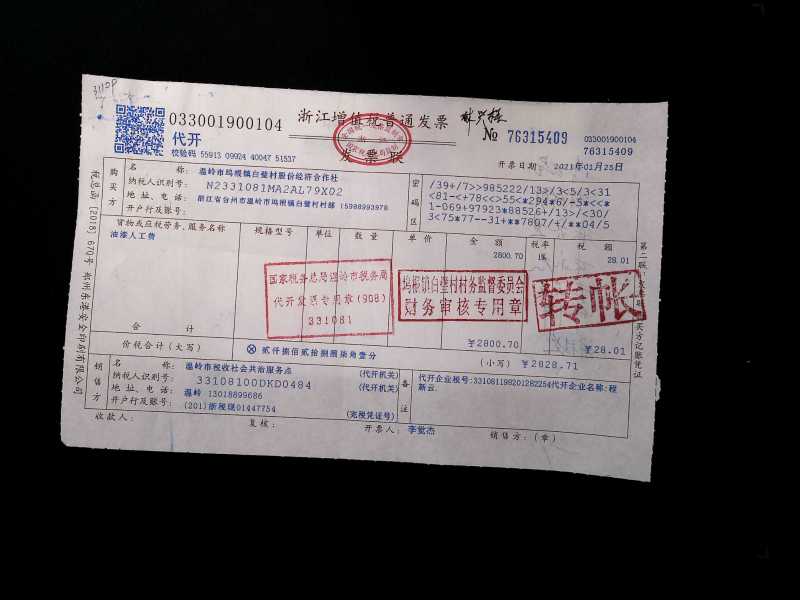 033001900104
浙江增值税普通发票
№ 76315409
033001900104
76315409
代开
发票联
校验码 55913 09924 40047 51537
开票日期: 2021年01月25日
购买方
名 称: 温岭市坞根镇白壁村股份经济合作社
纳税人识别号: N2331081MA2AL79X02
地 址、电 话: 浙江省台州市温岭市坞根镇白壁村村部 15988993978
开户行及账号:
密码区
/39+/7>>985222/13>/3<5/3<31
<81-<+78<<>55<*294*6/-5*<<<
1-069+97923*88526+/13>/<30/
3<75*77--31+**7807/+/**04/5
货物或应税劳务、服务名称 规格型号 单位 数 量 单 价 金 额 税率 税 额
油漆人工费 2800.70 1% 28.01
国家税务总局温岭市税务局
代开发票专用章(908)
331081
坞根镇白壁村村务监督委员会
财务审核专用章
转帐
合 计 ￥2800.70 ￥28.01
价税合计(大写) ⊗ 贰仟捌佰贰拾捌圆柒角壹分 (小写) ￥2828.71
销售方
名 称: 温岭市税收社会共治服务点 (代开机关)
纳税人识别号: 33108100DKD0484 (代开机关)
地 址、电 话: 温岭 13018899686
开户行及账号: (201)浙税现01447754 (完税凭证号)
备注
代开企业税号:331081198201282254代开企业名称:程
新云.
收款人: 复核: 开票人: 李觉杰 销售方:(章)
税总函〔2018〕670号 郑州东港安全印刷有限公司